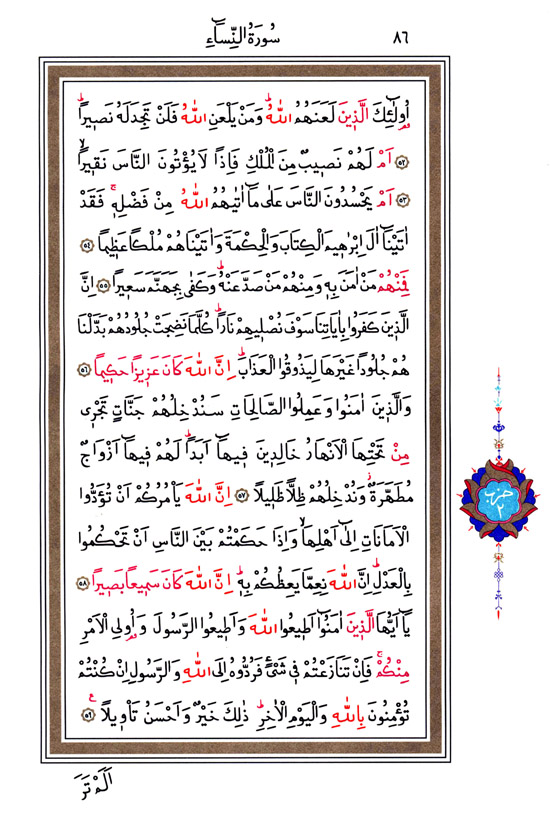 ٨٦
سُورَةُ النِّسَاءِ
اُولٰٓئِكَ الَّذ۪ينَ لَعَنَهُمُ اللّٰهُۜ وَمَنْ يَلْعَنِ اللّٰهُ فَلَنْ تَجِدَ لَهُ نَص۪يراًۜ
﴿٥٢﴾ اَمْ لَهُمْ نَص۪يبٌ مِنَ الْمُلْكِ فَاِذاً لَا يُؤْتُونَ النَّاسَ نَق۪يراًۙ
﴿٥٣﴾ اَمْ يَحْسُدُونَ النَّاسَ عَلٰى مَٓا اٰتٰيهُمُ اللّٰهُ مِنْ فَضْلِه۪ۚ فَقَدْ
اٰتَيْنَٓا اٰلَ اِبْرٰه۪يمَ الْكِتَابَ وَالْحِكْمَةَ وَاٰتَيْنَاهُمْ مُلْكاً عَظ۪يماً ﴿٥٤﴾
فَمِنْهُمْ مَنْ اٰمَنَ بِه۪ وَمِنْهُمْ مَنْ صَدَّ عَنْهُۜ وَكَفٰى بِجَهَنَّمَ سَع۪يراً ﴿٥٥﴾ اِنَّ
الَّذ۪ينَ كَفَرُوا بِاٰيَاتِنَا سَوْفَ نُصْل۪يهِمْ نَاراًۜ كُلَّمَا نَضِجَتْ جُلُودُهُمْ بَدَّلْنَا
هُمْ جُلُوداً غَيْرَهَا لِيَذُوقُوا الْعَذَابَۜ اِنَّ اللّٰهَ كَانَ عَز۪يزاً حَك۪يماً ﴿٥٦﴾
وَالَّذ۪ينَ اٰمَنُوا وَعَمِلُوا الصَّالِحَاتِ سَنُدْخِلُهُمْ جَنَّاتٍ تَجْر۪ي
مِنْ تَحْتِهَا الْاَنْهَارُ خَالِد۪ينَ ف۪يهَٓا اَبَداًۜ لَهُمْ ف۪يهَٓا اَزْوَاجٌ
مُطَهَّرَةٌۘ وَنُدْخِلُهُمْ ظِلاًّ ظَل۪يلاً ﴿٥٧﴾ اِنَّ اللّٰهَ يَأْمُرُكُمْ اَنْ تُؤَدُّوا
الْاَمَانَاتِ اِلٰٓى اَهْلِهَاۙ وَاِذَا حَكَمْتُمْ بَيْنَ النَّاسِ اَنْ تَحْكُمُوا
بِالْعَدْلِۜ اِنَّ اللّٰهَ نِعِمَّا يَعِظُكُمْ بِه۪ۜ اِنَّ اللّٰهَ كَانَ سَم۪يعاً بَص۪يراً ﴿٥٨﴾
يَٓا اَيُّهَا الَّذ۪ينَ اٰمَنُٓوا اَط۪يعُوا اللّٰهَ وَاَط۪يعُوا الرَّسُولَ وَاُو۬لِي الْاَمْرِ
مِنْكُمْۚ فَاِنْ تَنَازَعْتُمْ ف۪ي شَيْءٍ فَرُدُّوهُ اِلَى اللّٰهِ وَالرَّسُولِ اِنْ كُنْتُمْ
تُؤْمِنُونَ بِاللّٰهِ وَالْيَوْمِ الْاٰخِرِۜ ذٰلِكَ خَيْرٌ وَاَحْسَنُ تَأْو۪يلاً۟ ﴿٥٩﴾
حزب
٢
اَلَمْ تَرَ